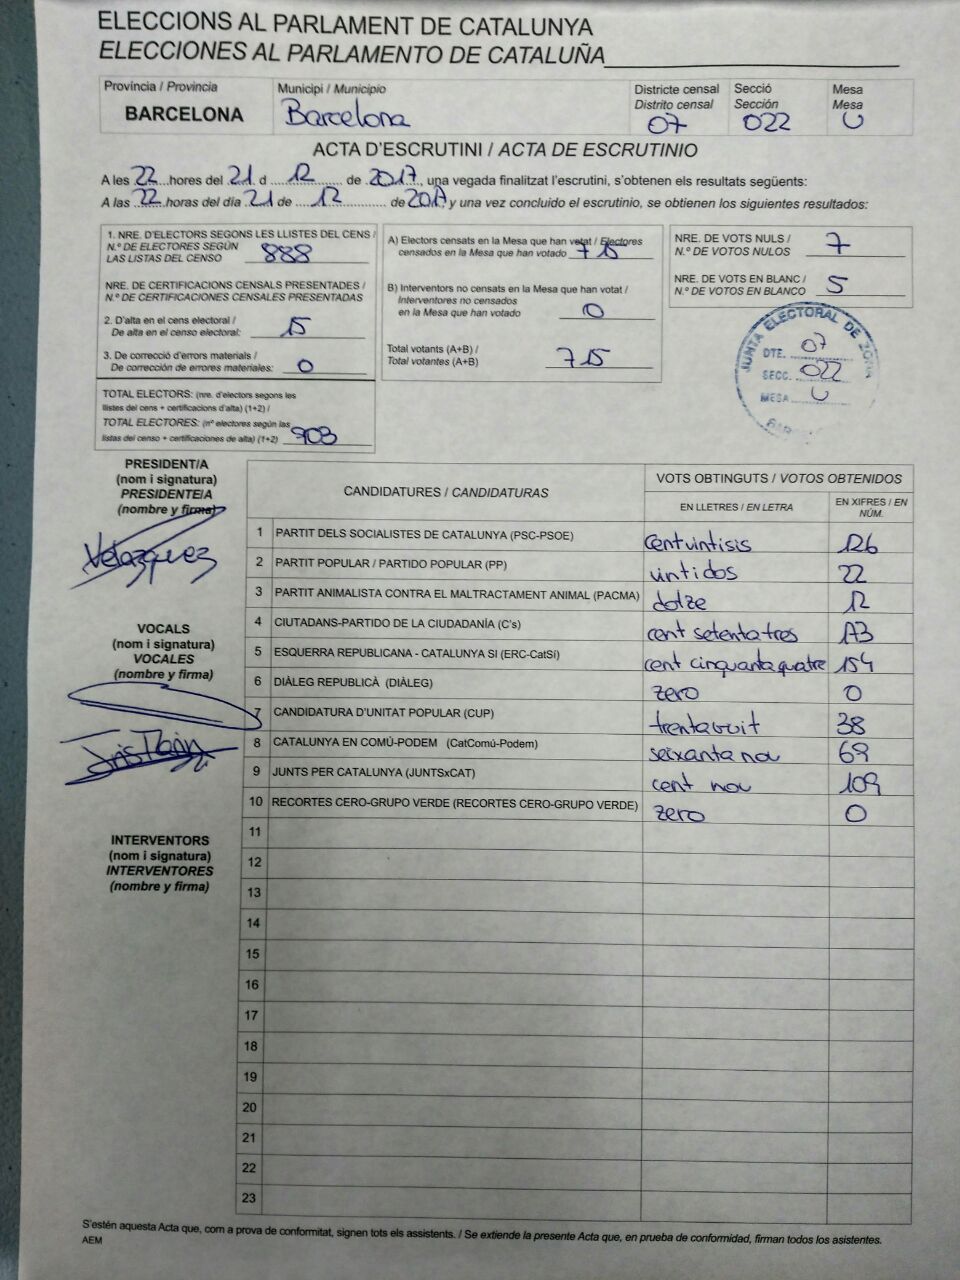 ELECCIONS AL PARLAMENT DE CATALUNYA
ELECCIONES AL PARLAMENTO DE CATALUÑA
Província / Provincia
BARCELONA
Municipi / Municipio
Barcelona
Districte censal
Distrito censal
07
Secció
Sección
022
Mesa
Mesa
U
ACTA D'ESCRUTINI / ACTA DE ESCRUTINIO
A les 22 hores del 21 d 12 de 2017, una vegada finalitzat l'escrutini, s'obtenen els resultats següents:
A las 22 horas del día 21 de 12 de 2017 y una vez concluido el escrutinio, se obtienen los siguientes resultados:
1. NRE. D'ELECTORS SEGONS LES LLISTES DEL CENS /
N.º DE ELECTORES SEGÚN
LAS LISTAS DEL CENSO 888
NRE. DE CERTIFICACIONS CENSALS PRESENTADES /
N.º DE CERTIFICACIONES CENSALES PRESENTADAS
2. D'alta en el cens electoral /
De alta en el censo electoral: 15
3. De correcció d'errors materials /
De corrección de errores materiales: 0
TOTAL ELECTORS: (nre. d'electors segons les
llistes del cens + certificacions d'alta) (1+2) /
TOTAL ELECTORES: (nº electores según las
listas del censo + certificaciones de alta) (1+2) 903
A) Electors censats en la Mesa que han votat / Electores
censados en la Mesa que han votado 715
B) Interventors no censats en la Mesa que han votat /
Interventores no censados
en la Mesa que han votado 0
Total votants (A+B) /
Total votantes (A+B) 715
NRE. DE VOTS NULS /
N.º DE VOTOS NULOS 7
NRE. DE VOTS EN BLANC /
N.º DE VOTOS EN BLANCO 5
JUNTA ELECTORAL DE ZONA
DTE. 07
SECC. 022
MESA U
PRESIDENT/A
(nom i signatura)
PRESIDENTE/A
(nombre y firma)
Velazquez
VOCALS
(nom i signatura)
VOCALES
(nombre y firma)
INTERVENTORS
(nom i signatura)
INTERVENTORES
(nombre y firma)
CANDIDATURES / CANDIDATURAS
VOTS OBTINGUTS / VOTOS OBTENIDOS
EN LLETRES / EN LETRA
EN XIFRES / EN NÚM.
1 PARTIT DELS SOCIALISTES DE CATALUNYA (PSC-PSOE) centvintisis 126
2 PARTIT POPULAR / PARTIDO POPULAR (PP) vintidos 22
3 PARTIT ANIMALISTA CONTRA EL MALTRACTAMENT ANIMAL (PACMA) dotze 12
4 CIUTADANS-PARTIDO DE LA CIUDADANÍA (C's) cent setenta tres 173
5 ESQUERRA REPUBLICANA - CATALUNYA SI (ERC-CatSí) cent cinquanta quatre 154
6 DIÀLEG REPUBLICÀ (DIÀLEG) zero 0
7 CANDIDATURA D'UNITAT POPULAR (CUP) trenta vuit 38
8 CATALUNYA EN COMÚ-PODEM (CatComú-Podem) seixanta nou 69
9 JUNTS PER CATALUNYA (JUNTSxCAT) cent nou 109
10 RECORTES CERO-GRUPO VERDE (RECORTES CERO-GRUPO VERDE) zero 0
11
12
13
14
15
16
17
18
19
20
21
22
23
S'estén aquesta Acta que, com a prova de conformitat, signen tots els assistents. / Se extiende la presente Acta que, en prueba de conformidad, firman todos los asistentes.
AEM